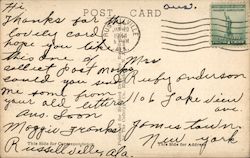 POST CARD
ans.
Hi,
Thanks for the
lovely card
hope you like
this one. I
collect Post marks
could you send
me some from
your old letters
Ans. Soon
Maggie Franks
Russellville, Ala.
Mrs
Ruby Anderson
1106 Lake View
ave.
Jamestown,
New York
This Side for Correspondence
This Side for Address